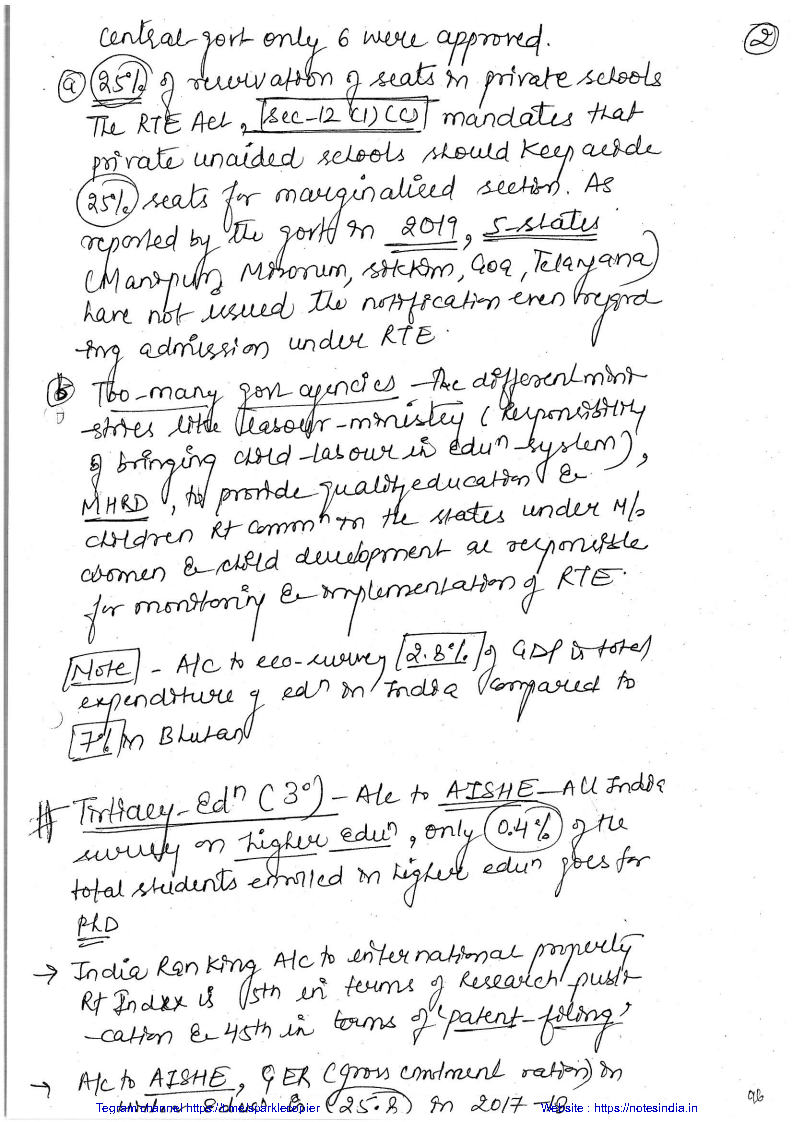 central govt only 6 were approved.
2
a 25% of reservation of seats in private schools
The RTE Act, Sec-12 (1) (c) mandates that
private unaided schools should keep aside
25% seats for marginalised section. As
reported by the govt in 2019, 5-states
(Manipur, Mizorum, sikkim, Goa, Telangana)
have not issued the notification even regard
-ing admission under RTE.
b Too-many govt agencies - The different mini
-stries like labour-ministry (Responsibility
of bringing child-labour in edun-system),
MHRD, to provide quality education &
children Rt commn in the states under M/o
women & child development are responsible
for monitoring & implementation of RTE.
Note - A/c to eco-survey 2.8% of GDP is total
expenditure of edn in India compared to
7% in Bhutan
# Tirtiary-Edn (3°) - A/c to AISHE-All India
survey on higher edun, only 0.4% of the
total students enrolled in higher edun goes for
PhD
→ India Ranking A/c to international property
Rt Index is 5th in terms of Research publi
-cation & 45th in terms of 'patent-filing'
→ A/c to AISHE, GER (gross enrolment ration) in
(25.8) in 2017-18
96
Website : https://notesindia.in